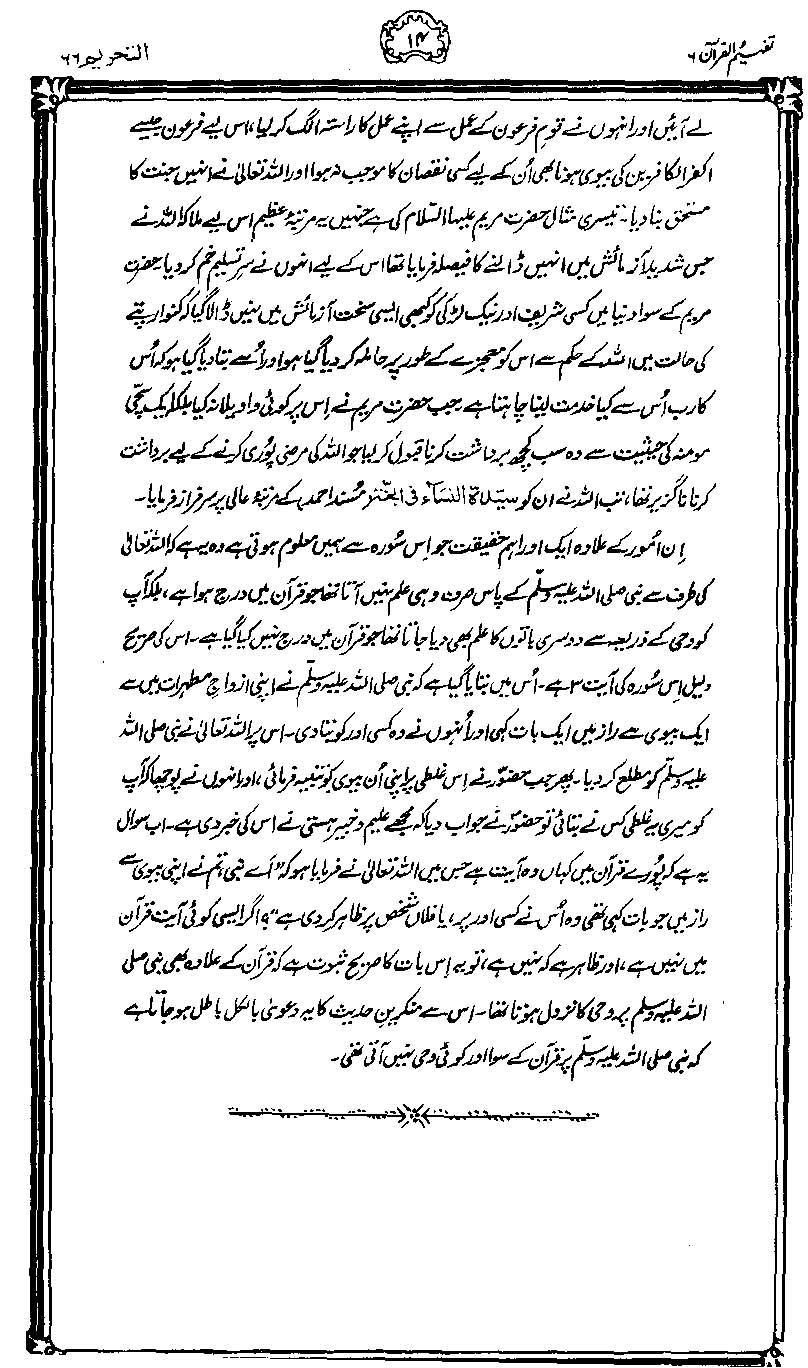 تفہیم القرآن ۶
۱۴
التحریم ۶۶
لے آئیں اور انہوں نے قومِ فرعون کے عمل سے اپنے عمل کا راستہ الگ کر لیا، اس لیے فرعون جیسے
اکفر الکافرین کی بیوی ہونا بھی اُن کے لیے کسی نقصان کا موجب نہ ہوا اور اللہ تعالیٰ نے انہیں جنت کا
مستحق بنا دیا۔ تیسری مثال حضرت مریم علیہا السلام کی ہے جنہیں یہ مرتبۂ عظیم اس لیے ملا کہ اللہ نے
جس شدید آزمائش میں انہیں ڈالنے کا فیصلہ فرمایا تھا اس کے لیے انہوں نے سرِ تسلیم خم کر دیا۔ حضرت
مریم کے سوا دنیا میں کسی شریف اور نیک لڑکی کو کبھی ایسی سخت آزمائش میں نہیں ڈالا گیا کہ کنوارپنے
کی حالت میں اللہ کے حکم سے اس کو معجزے کے طور پر حاملہ کر دیا گیا ہو اور اُسے بتا دیا گیا ہو کہ اُس
کا رب اُس سے کیا خدمت لینا چاہتا ہے۔ جب حضرت مریم نے اِس پر کوئی واویلا نہ کیا بلکہ ایک سچّی
مومنہ کی حیثیت سے وہ سب کچھ برداشت کرنا قبول کر لیا جو اللہ کی مرضی پُوری کرنے کے لیے برداشت
کرنا ناگزیر تھا، تب اللہ نے ان کو سیّدۃ النساء فی الجنّۃ (مُسند احمد) کے مرتبۂ عالی پر سرفراز فرمایا۔
اِن اُمور کے علاوہ ایک اور اہم حقیقت جو اِس سُورہ سے ہمیں معلوم ہوتی ہے وہ یہ ہے کہ اللہ تعالیٰ
کی طرف سے نبی صلی اللہ علیہ وسلّم کے پاس صرف وہی علم نہیں آتا تھا جو قرآن میں درج ہوا ہے، بلکہ آپ
کو وحی کے ذریعہ سے دوسری باتوں کا علم بھی دیا جاتا تھا جو قرآن میں درج نہیں کیا گیا ہے۔ اس کی صریح
دلیل اِس سُورہ کی آیت ۳ ہے۔ اُس میں بتایا گیا ہے کہ نبی صلی اللہ علیہ وسلّم نے اپنی ازواجِ مطہرات میں سے
ایک بیوی سے راز میں ایک بات کہی اور اُنہوں نے وہ کسی اور کو بتا دی۔ اس پر اللہ تعالیٰ نے نبی صلی اللہ
علیہ وسلّم کو مطلع کر دیا۔ پھر جب حضورؐ نے اِس غلطی پر اپنی اُن بیوی کو تنبیہ فرمائی، اور انہوں نے پوچھا کہ آپ
کو میری یہ غلطی کس نے بتائی تو حضورؐ نے جواب دیا کہ مجھے علیم و خبیر ہستی نے اس کی خبر دی ہے۔ اب سوال
یہ ہے کہ پُورے قرآن میں کہاں وہ آیت ہے جس میں اللہ تعالیٰ نے فرمایا ہو کہ "اَے نبی تم نے اپنی بیوی سے
راز میں جو بات کہی تھی وہ اُس نے کسی اور پر، یا فلاں شخص پر ظاہر کر دی ہے"؟ اگر ایسی کوئی آیت قرآن
میں نہیں ہے، اور ظاہر ہے کہ نہیں ہے، تو یہ اِس بات کا صریح ثبوت ہے کہ قرآن کے علاوہ بھی نبی صلی
اللہ علیہ وسلم پر وحی کا نزول ہوتا تھا۔ اس سے منکرینِ حدیث کا یہ دعویٰ بالکل باطل ہو جاتا ہے
کہ نبی صلی اللہ علیہ وسلّم پر قرآن کے سوا اور کوئی وحی نہیں آتی تھی۔